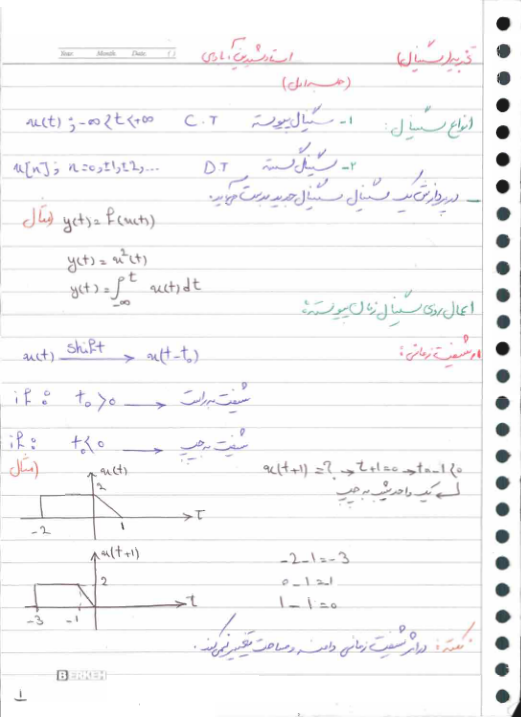 Year: Month: Date: ( )
تجزیه (سیگنال) استاد
(جلسه اول)
انواع سیگنال: 1- سیگنال پیوسته C.T x(t) ; -∞<t<+∞
2- سیگنال گسسته D.T x[n]; n=0,±1,±2,...
- در پردازش یک سیگنال، سیگنال جدید بدست می‌آید.
مثال) y(t) = f(x(t))
y(t) = x²(t)
y(t) = ∫_{-∞}^{t} x(t) dt
اعمال روی سیگنال زمان پیوسته:
1- شیفت زمانی:
x(t) shift → x(t-t₀)
if: t₀>0 → شیفت به راست
if: t₀<0 → شیفت به چپ
مثال) x(t+1) = ? → t+1=0 → t=-1<0
یک واحد شیفت به چپ
x(t)
2
-2 1 t
x(t+1)
2
-3 -1 t
-2-1=-3
0-1=1
1-1=0
نکته: در اثر شیفت زمانی دامنه و مساحت تغییر نمی‌کند.
BERKEH
1